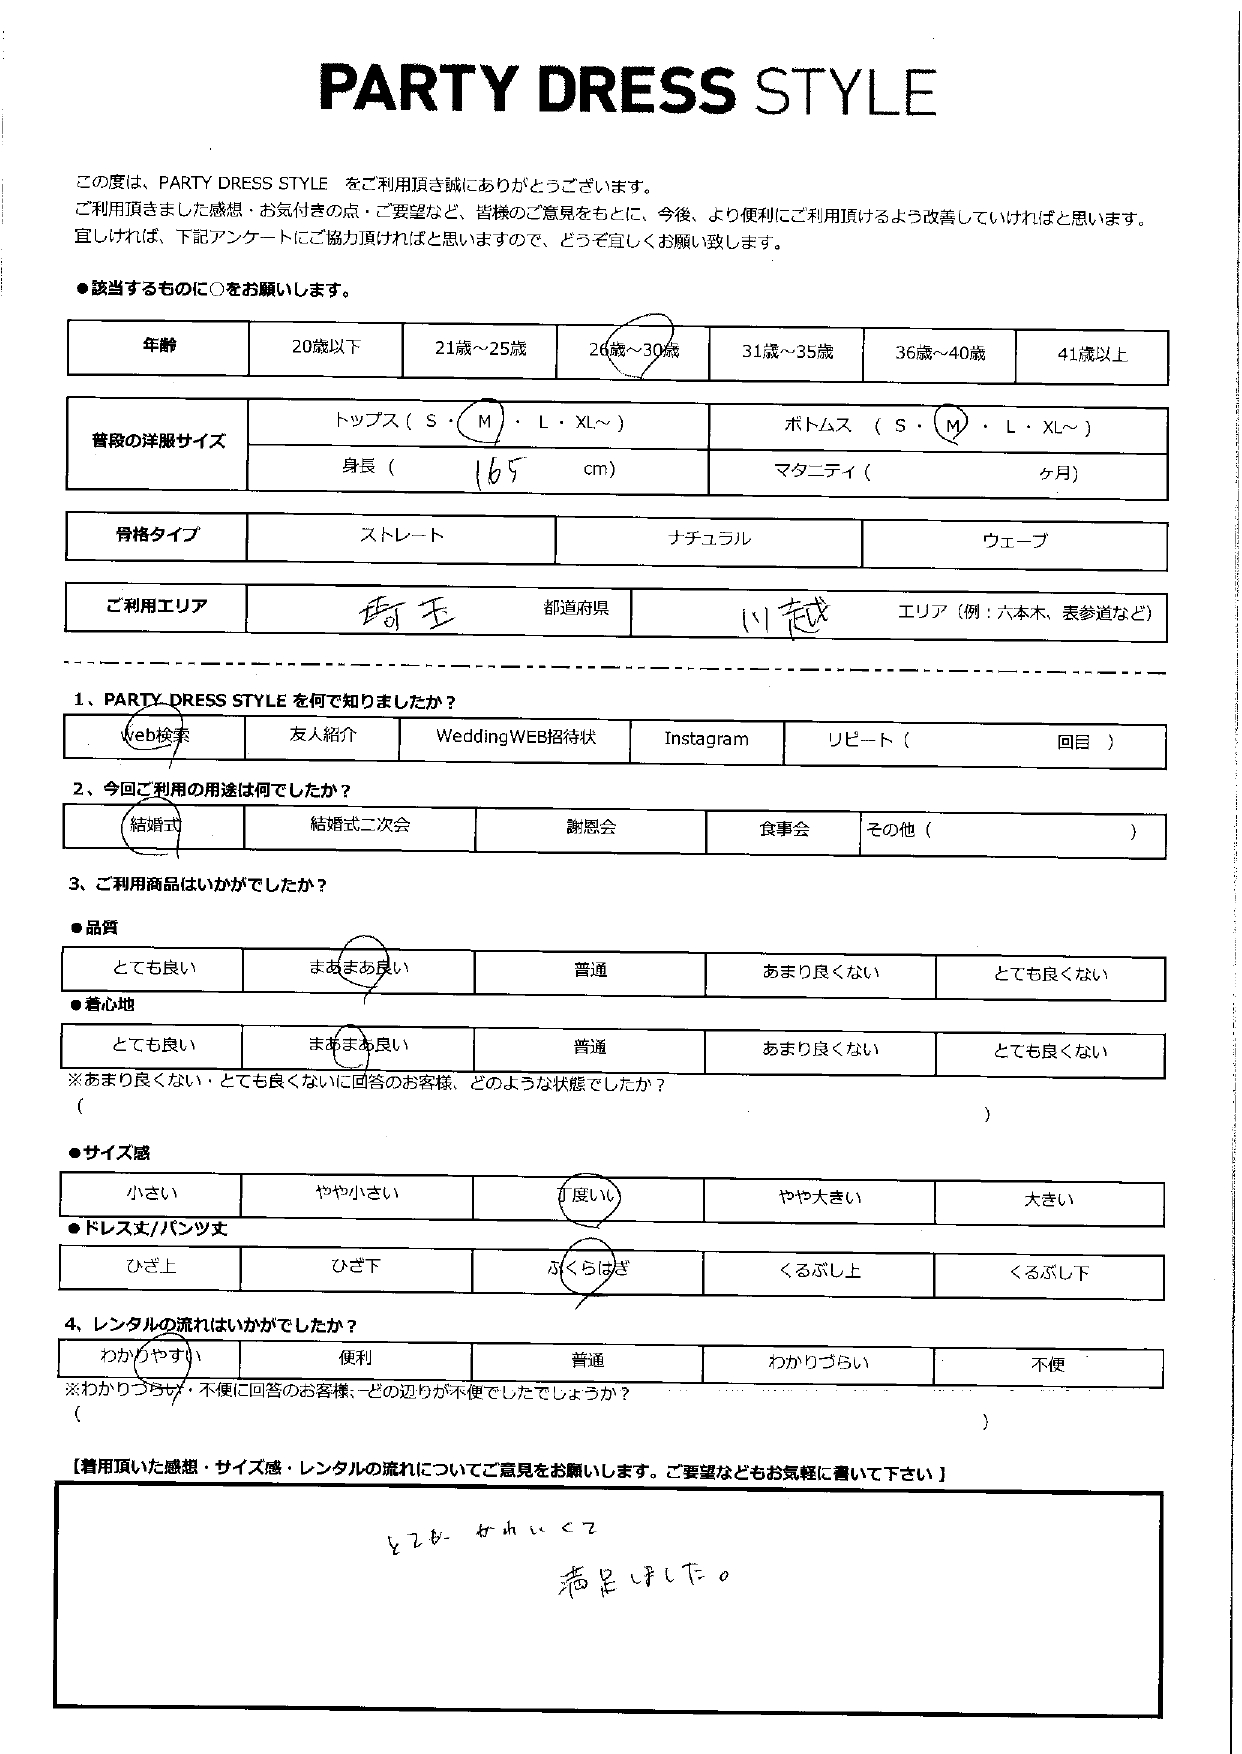 PARTY DRESS STYLE
この度は、PARTY DRESS STYLE をご利用頂き誠にありがとうございます。
ご利用頂きました感想・お気付きの点・ご要望など、皆様のご意見をもとに、今後、より便利にご利用頂けるよう改善していければと思います。
宜しければ、下記アンケートにご協力頂ければと思いますので、どうぞ宜しくお願い致します。
●該当するものに○をお願いします。
年齢 20歳以下 21歳～25歳 26歳～30歳 31歳～35歳 36歳～40歳 41歳以上
普段の洋服サイズ トップス ( S ・ M ・ L ・ XL～ ) ボトムス ( S ・ M ・ L ・ XL～ )
身長 ( 165 cm) マタニティ ( ヶ月)
骨格タイプ ストレート ナチュラル ウェーブ
ご利用エリア 埼玉 都道府県 川越 エリア（例：六本木、表参道など）
1、PARTY DRESS STYLE を何で知りましたか？
Web検索 友人紹介 WeddingWEB招待状 Instagram リピート ( 回目 )
2、今回ご利用の用途は何でしたか？
結婚式 結婚式二次会 謝恩会 食事会 その他 ( )
3、ご利用商品はいかがでしたか？
●品質
とても良い まあまあ良い 普通 あまり良くない とても良くない
●着心地
とても良い まあまあ良い 普通 あまり良くない とても良くない
※あまり良くない・とても良くないに回答のお客様、どのような状態でしたか？
( )
●サイズ感
小さい やや小さい 丁度いい やや大きい 大きい
●ドレス丈/パンツ丈
ひざ上 ひざ下 ふくらはぎ くるぶし上 くるぶし下
4、レンタルの流れはいかがでしたか？
わかりやすい 便利 普通 わかりづらい 不便
※わかりづらい・不便に回答のお客様、どの辺りが不便でしたでしょうか？
( )
【着用頂いた感想・サイズ感・レンタルの流れについてご意見をお願いします。ご要望などもお気軽に書いて下さい】
とても かわいくて
満足しました。